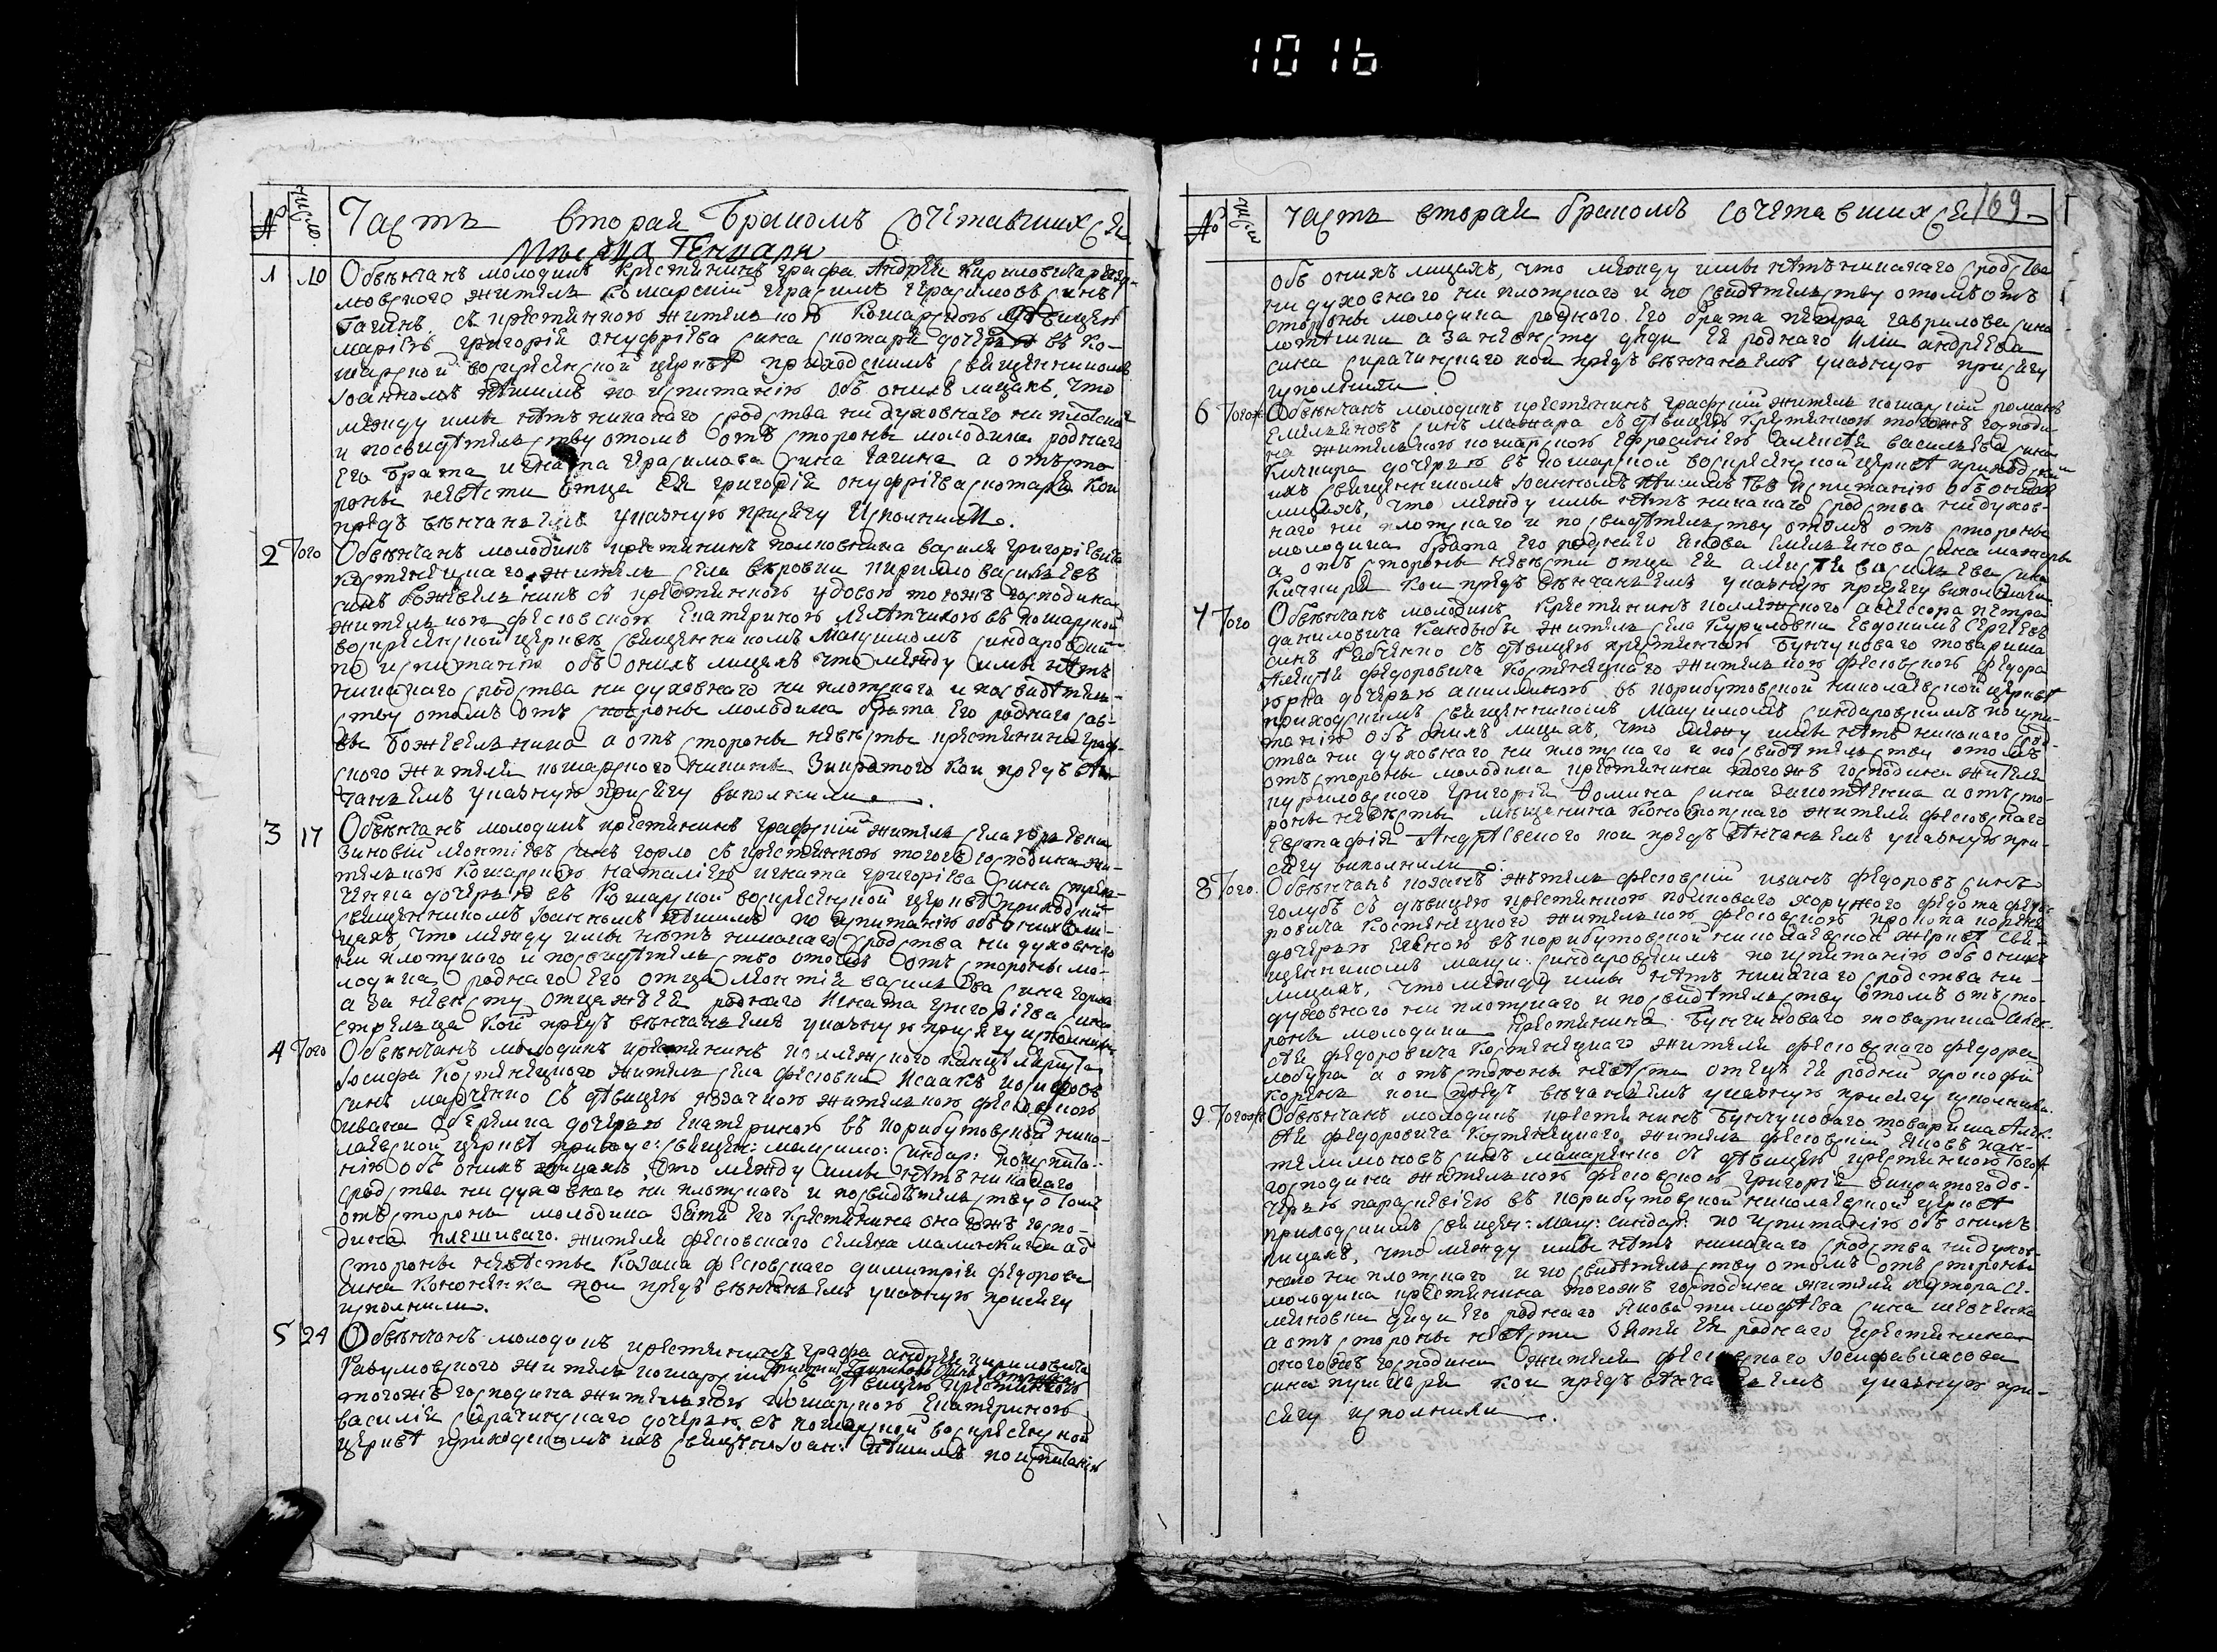 1016
№ Число Часть вторая Бракомъ сочетавшихся
Мѣсяца Генваря
1 10 Обвѣнчанъ молодикъ крестянинъ графа Андрея Кириловича Разу-
мовского житель кошарскій Герасимъ Герасимовъ синъ
Гагинъ съ крестянкою жителкою кошарскою дѣвицею
маріею григорія онуфріева сина скотаря дочерью въ ко-
шарской воскресенской церквѣ приходскимъ священникомъ
Іоанномъ по испитанію объ онихъ лицахъ, что
между ими нѣтъ никакаго сродства ни духовнаго ни плотскаго
и посвидѣтелству отомъ отъ стороны молодика роднаго
его брата игната герасимова сина гагина а отъ сто
роны невѣсти отца ея григорія онуфріева скотаря кои
предъ вѣнчаніемъ указную присягу исполнили.
2 Того Обвѣнчанъ молодикъ крестянинъ полковника василя григоріевича
костенецкаго житель села вировки кирило василевъ
синъ съ крестянкою удовою тогожъ господина
жителкою фесювскою Екатериною въ кошарской
воскресенской церквѣ священникомъ Максимомъ синдаровскимъ
по испитанію объ онихъ лицахъ что между ими нѣтъ
никакаго сродства ни духовнаго ни плотскаго и посвидѣтел-
ству отомъ отъ стороны молодика брата его роднаго сав-
вы а отъ стороны невѣсты крестянина граф-
ского жителя кошарского Закратого кои предъ вѣн
чаніемъ указную присягу виполнили.
3 17 Обвѣнчанъ молодикъ крестянинъ графскій житель села
Зиновій леонтіевъ синъ горло съ крестянкою тогожъ господина жи-
телкою кошарскою наталіею игната григоріева сина стрел-
ченка дочерью въ кошарской воскресенской церквѣ приходскимъ
священникомъ Іоанномъ по испитанію объ онихъ ли-
цахъ, что между ими нѣтъ никакаго сродства ни духовнаго
ни плотскаго и посвидѣтелство отомъ отъ стороны мо-
лодика роднаго его отца леонтія василева сина горла
а за невѣсту отца жъ ея роднаго игната григоріева сина
стрелца кои предъ вѣнчаніемъ указную присягу исполнили
4 Того Обвѣнчанъ молодикъ крестянинъ колежского канцеляриста
Іосифа костенецкого житель села фесювки Исаакъ
синъ марченко съ дѣвицею козачкою жителкою фесювскою
ивана дочерью Екатериною въ корибутовской нико-
лаевской церквѣ приходс: священ: максимо: синдар: по испита-
нію объ онихъ лицахъ, что между ими нѣтъ никакаго
сродства ни духовнаго ни плотскаго и посвидѣтелству отомъ
отъ стороны молодика зятя его крестянина онагожъ госпо-
дина плешиваго. жителя фесювского семена а отъ
стороны невѣсты козака фесювскаго димитрія федорова
сина кононенка кои предъ вѣнчаніемъ указную присягу
исполнили.
5 24 Обвѣнчанъ молодикъ крестянинъ графа андрея кириловича
Разумовского житель кошарскій съ дѣвицею крестянкою
тогожъ господина жителкою кошарскою Екатериною
василія сирачинскаго дочерью въ кошарской воскресенской
церквѣ приходскимъ ихъ священ: Іоан: по испитанію
№ Число часть вторая бракомъ сочетавшихся 169
объ онихъ лицахъ, что между ими нѣтъ никакаго сродства
ни духовнаго ни плотскаго и по свидѣтелству отомъ отъ
стороны молодика роднаго его брата петра гаврилова сина
а за невѣсту дяди ея роднаго иліи андреева
сина сирачинскаго кои предъ вѣнчаніемъ указную присягу
исполнили
6 Тогожъ Обвѣнчанъ молодикъ крестянинъ графскій житель кошарскій романъ
Емеляновъ синъ съ дѣвицею крестянкою тогожъ господи-
на жителкою кошарскою Ефросиніею алексѣя василева сина
дочерью въ кошарской воскресенской церквѣ приходским
ихъ священникомъ Іоанномъ по испитанію объ онихъ
лицахъ, что между ими нѣтъ никакаго сродства ни духов-
наго ни плотскаго и по свидѣтелству отомъ отъ стороны
молодика брата его роднаго якова Емелянова сина
а отъ стороны невѣсти отца ея алексѣя василева сина
кои предъ вѣнчаніемъ указную присягу виполнили
7 Того Обвѣнчанъ молодикъ крестянинъ колежского асессора петра
даниловича Кандыбы житель села Куриловки Евдокимъ Сергѣевъ
синъ съ дѣвицею крестянкою Бунчукового товариша
Алексѣя федоровича Костенецкаго жителкою фесювскою федора
дочерью акилиною въ корибутовской николаевской церквѣ
приходскимъ священникомъ Максимомъ синдаровскимъ по испи-
танію объ онихъ лицахъ, что между ими нѣтъ никакаго срод-
ства ни духовнаго ни плотскаго и посвидѣтелству отомъ
отъ стороны молодика крестянина тогожъ господина жителя
куриловского григорія фомина сина а отъ сто-
роны невѣсты мѣщанина конотопскаго жителя фесювскаго
Евстафія Андреевского кои предъ вѣнчаніемъ указную при-
сягу виполнили
8 Того Обвѣнчанъ козакъ житель фесювскій иванъ федоровъ синъ
голубъ съ дѣвицею крестянкою полкового хоружого
ровича Костенецкого жителкою фесювскою прокопа кореня
дочерью Еленою въ корибутовской николаевской церквѣ свя-
щенникомъ макси: синдаровскимъ по испитанію объ онихъ
лицахъ, что между ими нѣтъ никакаго сродства ни
духовнаго ни плотскаго и по свидѣтелству отомъ отъ сто-
роны молодика крестянина Бунчукового товариша Алек-
сѣя федоровича Костенецкаго жителя фесювскаго федора
а отъ стороны невѣсти отецъ ея родній прокофій
корень кои предъ вѣнчаніемъ указную присягу исполнили.
9 Тогожъ Обвѣнчанъ молодикъ крестянинъ Бунчукового товариша Алек-
сѣя федоровича Костенецкаго житель фесювскій Яковъ пан-
телимоновъ синъ макаренко съ дѣвицею крестянкою тогожъ
господина жителкою фесювскою григорія Закратого до-
черью параскевіею въ корибутовской николаевской церквѣ
приходскимъ священ: макс: синдар: по испитанію объ онихъ
лицахъ, что между ими нѣтъ никакаго сродства ни духов-
наго ни плотскаго и по свидѣтелству отомъ отъ стороны
молодика крестянина тогожъ господина жителя хутора се-
меновки дяди его роднаго Якова тимофѣева сина шевченка
а отъ стороны невѣсти зятя ея роднаго крестянина
оногожъ господина жителя фесювского Іосифа власова
сина пушкаря кои предъ вѣнчаніемъ указную при-
сягу исполнили